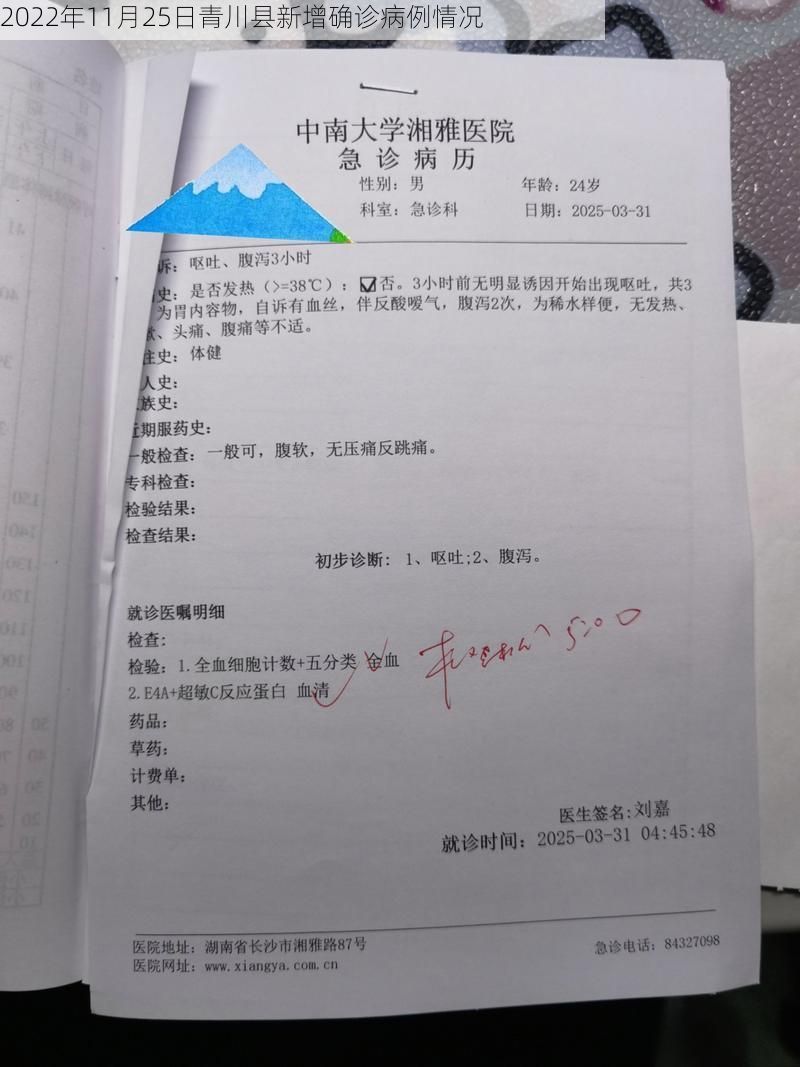 2022年11月25日青川县新增确诊病例情况
中南大学湘雅医院
急诊病历
性别：男 年龄：24岁
科室：急诊科 日期：2025-03-31
诉：呕吐、腹泻3小时
史：是否发热（>=38℃）：☑否。3小时前无明显诱因开始出现呕吐，共3
为胃内容物，自诉有血丝，伴反酸嗳气，腹泻2次，为稀水样便，无发热、
、头痛、腹痛等不适。
往史：体健
人史：
族史：
近期服药史：
一般检查：一般可，腹软，无压痛反跳痛。
专科检查：
检验结果：
检查结果：
初步诊断：1、呕吐;2、腹泻。
就诊医嘱明细
检查：
检验：1.全血细胞计数+五分类 全血
2.E4A+超敏C反应蛋白 血清
5:00
药品：
草药：
计费单：
其他：
医生签名:刘嘉
就诊时间：2025-03-31 04:45:48
医院地址：湖南省长沙市湘雅路87号 急诊电话：84327098
医院网址：www.xiangya.com.cn